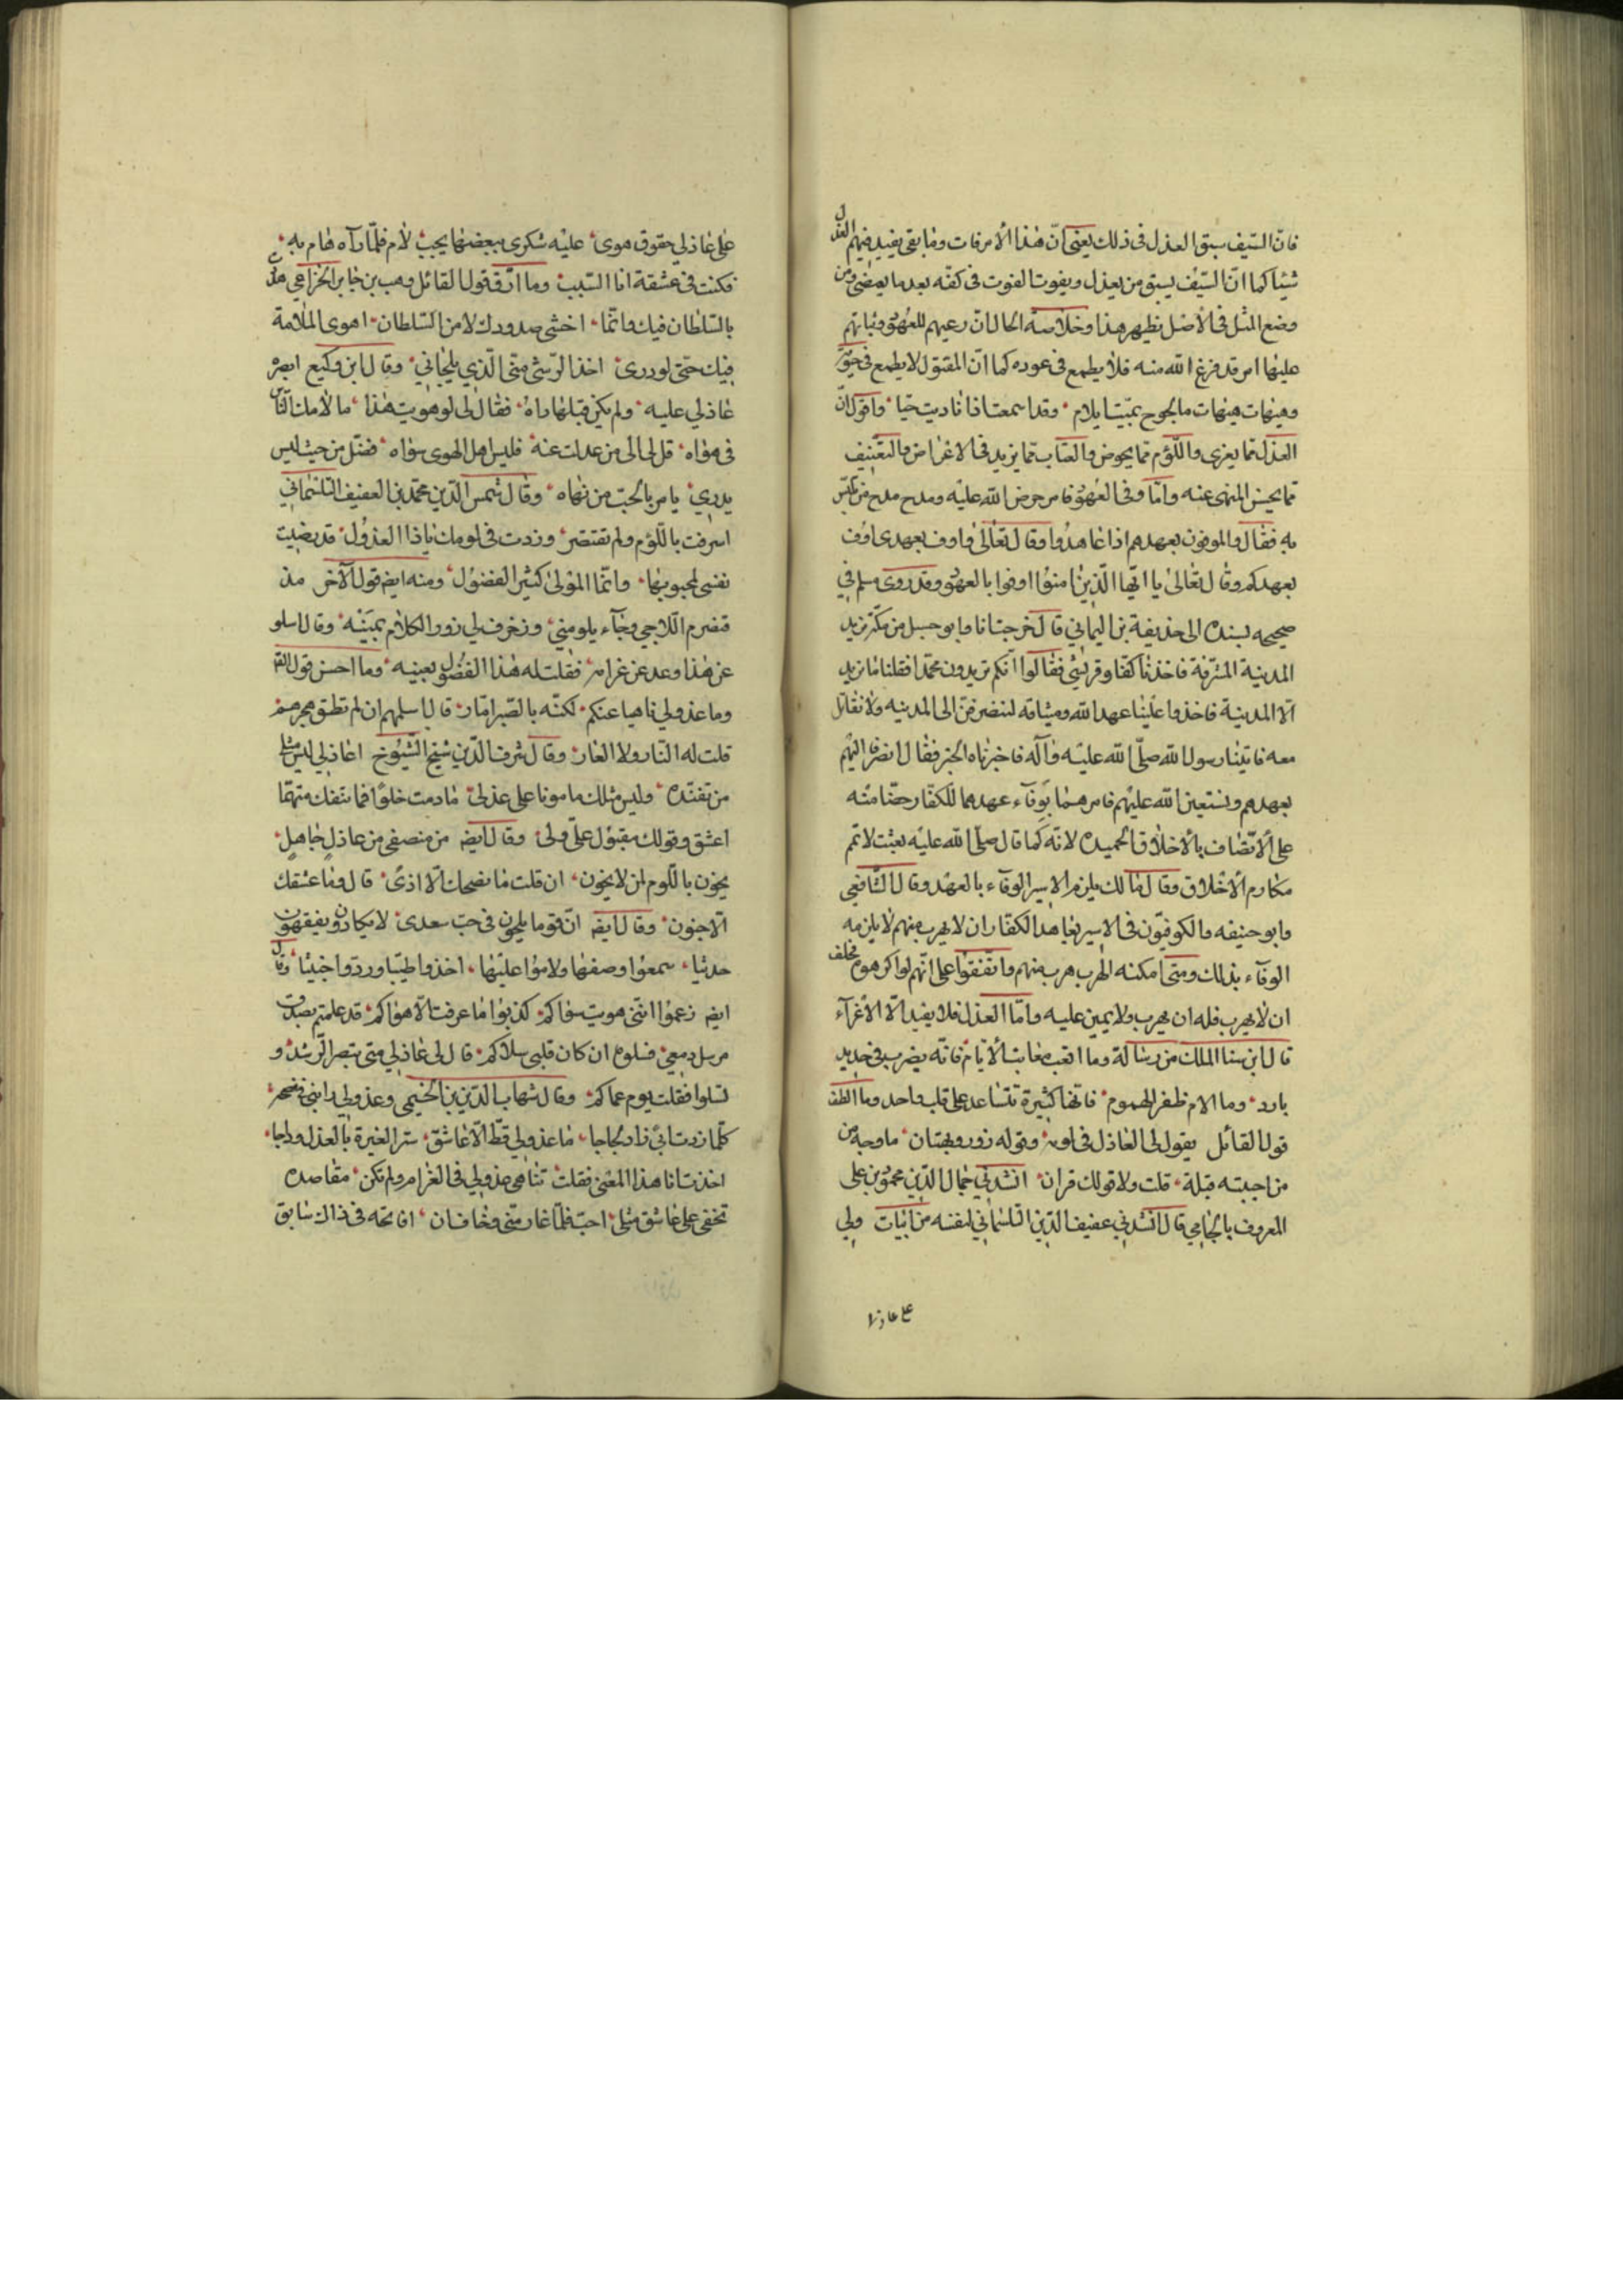 فانّ السّيف سبق العذل فى ذلك يعنى انّ هذا الأمر فات وما بقى يفيد فيهم العذل
شيئا كما انّ السّيف يسبق من يعذل ويفوت الفوت فى كفّه بعد ما يمضى ومن
وضع المثل فى الأصل نظيرهذا وخلاصة الحال انّ رعيهم للعهود وثباتهم
عليها امر قد فرغ الله منه فلا يطمع فى عوده كما انّ المقتول لا يطمع فى
وهيهات هيهات ما لجرح بميّت ايلام وقد اسمعت اذا ناديت حيّا واقول انّ
العذل ممّا يغرى واللّوم ممّا يحرض والعتاب ممّا يزيد فى الاغراض والتعنيف
ممّا يحسن المنهى عنه وامّا وفى العهود فامر حرض الله عليه ومدح مدح من تلبّس
به فقال والموفون بعهدهم اذا عاهدوا وقال تعالى واوفوا بعهدى اوف
بعهدكم وقال تعالى يا ايّها الّذين امنوا اوفوا بالعهود وقد روى مسلم فى
صحيحه بسنده الى حذيفة بن اليمانى قال خرجت انا وابو حسيل من مكّة نريد
المدينة المشرّفة فاخذنا كفّار قريش فقالوا انّكم تريدون محمّدا فقلنا ما نريد
الّا المدينة فاخذوا علينا عهد الله وميثاقه لننصرفنّ الى المدينه ولا نقاتل
معه فاتينا رسول الله صلّى الله عليه وآله فاخبرناه الخبر فقال انصرفا اليهم
بعهدهم ونستعين الله عليهم فامرهما بوفاء عهدهما للكفّار حضّا منه
على الاتّصاف بالأخلاق الحميده لانّه كما قال صلّى الله عليه بعثت لاتمم
مكارم الأخلاق وقال مالك يلزم الاسير الوفاء بالعهد وقال الشّافعى
وابو حنيفه والكوفيّون فى الاسير يعاهد الكفّار ان لا يهرب منهم لا يلزمه
الوفاء بذلك ومتى امكنه الهرب هرب منهم واتّفقوا على انّهم لو اكرهوه فحلف
ان لا يهرب فله ان يهرب ولا يمين عليه وامّا العذل فلا يفيد الّا الأغرآء
قال ابن سنا الملك من رسالة وما اتعب معاتب الأيّام فانّه يضرب فى حديد
بارد وما الام ظفر الهموم فانّها كثيرة تتساعد على قلب واحد وما الطف
قول القائل يقول لى العاذل فى لومه وقوله زور وبهتان ما وجه من
من احببته قبلة قلت ولا قولك قران انشدنى جمال الدّين محمود بن على
المعروف بالجامى قال انشدنى عفيف الدّين التلمسانى لنفسه من ابيات ولى
على عاذلى
على عاذلى حقوق هوى عليه شكرى ببعضها يجب لام فلمّا رآه هام به
فكنت فى عشقه انا السّبب وما ارقّ قول القائل وهب بن جابر الخزاعى هدد
بالسّلطان فيك وانّما اخشى صدودك لا من السّلطان اهوى الملامة
فيك حتى لو درى اخذ الرّشى منّى الّذى يلحانى وقال ابن وكيع ابصره
عاذلى عليه ولم يكن قبلها راه فقال لى لو هويت هذا ما لأمك النّاس
فى هواه قل لى الى من عدلت عنه فليس اهل الهوى سواه فضلّ من حيث ليس
يدرى يامر بالحبّ من نهاه وقال شمس الدّين محمّد بن العفيف التلمسانى
اسرفت باللّوم ولم تقتصر وزدت فى لومك ياذا العذول قد رضيت
نفسى لمحبوبها وانّما المولى كثير الفضول ومنه ايضا قول الآخر مذ
تضرم اللّاحى وجآء يلومنى وزخرف لى زور الكلام بمينه وقال اسلو
عن هذا وعد عن غرامه فقلت له هذا الفضول بعينه وما احسن قول
وما عذولى ناهيا عنكم لكنّه بالصّبر امّار قال اسلهم ان لم تطق هجرهم
قلت له النّار ولا العار وقال شرف الدّين شيخ الشّيوخ اعاذلى ليس مثلى
من تفنّده وليس مثلك مامونا على عذلى ما دمت خلوا فما تنفكّ متّهما
اعشق وقولك مقبول علىّ ولى وقال ايضا من منصفى من عاذل جاهل
يخون باللّوم لمن لا يخون ان قلت ما نصحك الّا اذى قال وما عشقك
الّا جنون وقال ايضا انّ قوما يلحون فى حبّ سعدى لا يكادون يفقهون
حديثا سمعوا وصفها ولاموا عليها اخذوا طيّبا وردّوا خبيثا وقال
ايضا زعموا انّنى هويت سواكم كذبوا ما عرفت الّا هواكم قد علمتم بصدق
مرسل دمعى فسلوه ان كان قلبى سلاكم قال لى عاذلى متى تبصر الرّشد و
تسلوا فقلت يوم عماكم وقال شهاب الدّين بن الخيمى وعذولى رابنى نصحه
كلّما زدت ابى زاد لجاجا ما عذولى قطّ الّا عاشق ستر الغيرة بالعذل وداجا
اخذت انا هذا المعنى فقلت تناهى عذولى فى الغرام ولم تكن مقاصده
تخفى على عاشق مثلى احبّ فلمّا غار منّى وخاف ان افاتحه فى ذاك سابق